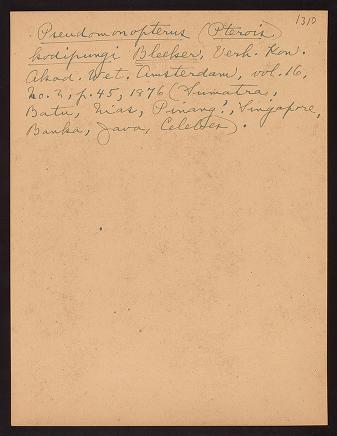 1310
Pseudomonopterus (Pterois
kodipungi Bleeker, Verh. Kon.
Akad. Wet. Amsterdam, vol. 16,
no. 3, p. 45, 1876 (Sumatra,
Batu, Nias, Pinang?, Singapore,
Banka, Java, Celebes).